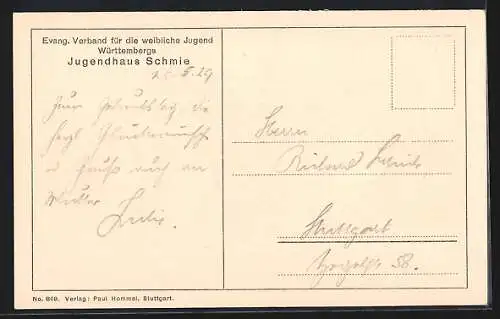 Evang. Verband für die weibliche Jugend
Württembergs
Jugendhaus Schmie
5.29
Zum Geburtstag die
herzl. Glückwünsche
u. Gruß auch an
Mutter
Herrn
Richard
Stuttgart
58.
No. 840. Verlag: Paul Hommel, Stuttgart.